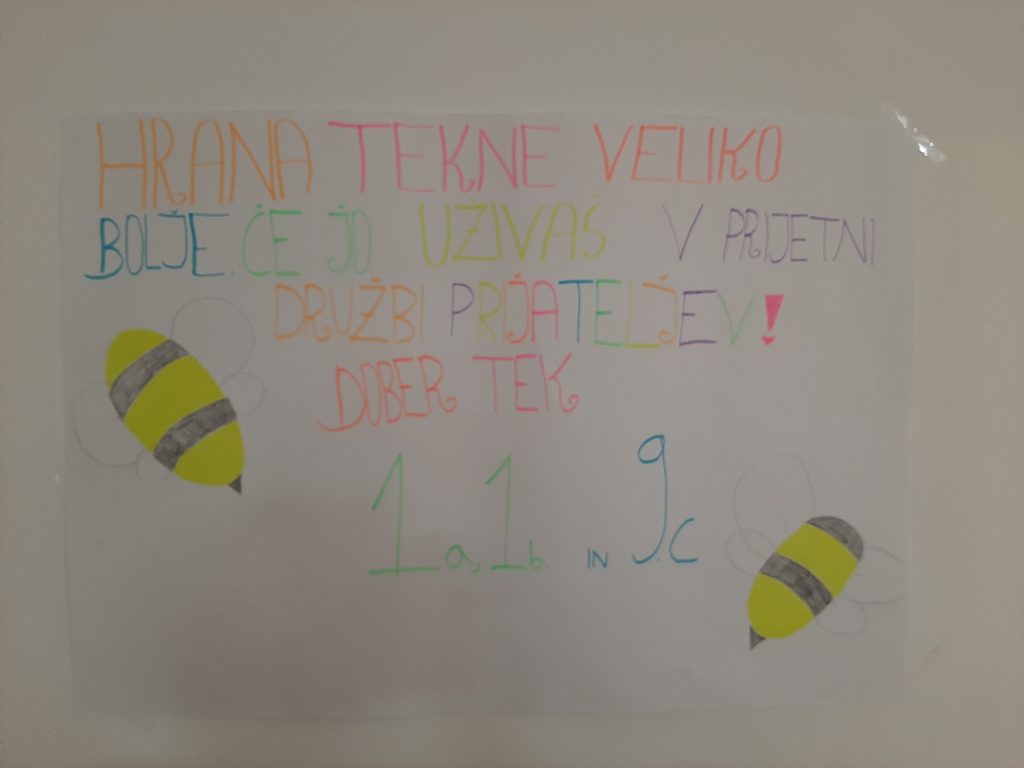 HRANA TEKNE VELIKO
BOLJE, ČE JO UŽIVAŠ V PRIJETNI
DRUŽBI PRIJATELJEV!
DOBER TEK
1.a, 1.b. IN 9.C